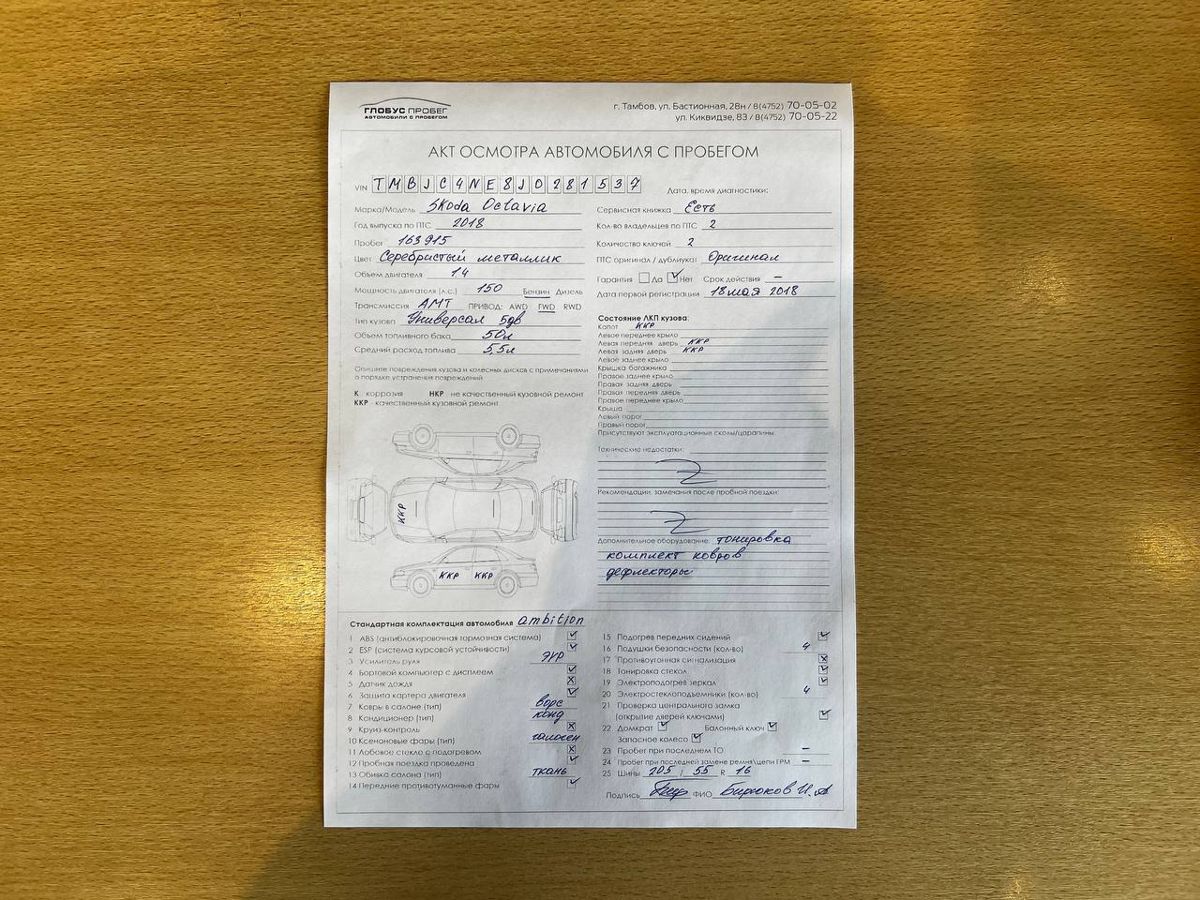 ГЛОБУС ПРОБЕГ
АВТОМОБИЛИ С ПРОБЕГОМ
г. Тамбов, ул. Бастионная, 28н / 8(4752) 70-05-02
ул. Киквидзе, 83 / 8(4752) 70-05-22
АКТ ОСМОТРА АВТОМОБИЛЯ С ПРОБЕГОМ
VIN TMBJC4NE8J0281537
Марка/Модель Skoda Octavia
Год выпуска по ПТС 2018
Пробег 163915
Цвет Серебристый металлик
Объем двигателя 1.4
Мощность двигателя (л.с.) 150 Бензин Дизель
Трансмиссия АМТ ПРИВОД: AWD FWD RWD
Тип кузова Универсал 5дв
Объем топливного бака 50л
Средний расход топлива 5,5л
Опишите повреждения кузова и колесных дисков с примечаниями
о порядке устранения повреждений
К коррозия НКР не качественный кузовной ремонт
ККР - качественный кузовной ремонт
ККР
ККР ККР
Дата, время диагностики:
Сервисная книжка Есть
Кол-во владельцев по ПТС 2
Количество ключей 2
ПТС оригинал / дубликат Оригинал
Гарантия Да Нет Срок действия –
Дата первой регистрации 18 мая 2018
Состояние ЛКП кузова:
Капот ККР
Левое переднее крыло
Левая передняя дверь ККР
Левая задняя дверь ККР
Левое заднее крыло
Крышка багажника
Правое заднее крыло
Правая задняя дверь
Правая передняя дверь
Правое переднее крыло
Крыша
Левый порог
Правый порог
Присутствуют эксплуатационные сколы/царапины
Технические недостатки:
Рекомендации, замечания после пробной поездки:
Дополнительное оборудование: тонировка
комплект ковров
дефлекторы
Стандартная комплектация автомобиля ambition
1 ABS (антиблокировочная тормозная система)
2 ESP (система курсовой устойчивости)
3 Усилитель руля ЭУР
4 Бортовой компьютер с дисплеем
5 Датчик дождя
6 Защита картера двигателя
7 Ковры в салоне (тип) ворс
8 Кондиционер (тип) конд
9 Круиз-контроль
10 Ксеноновые фары (тип) галоген
11 Лобовое стекло с подогревом
12 Пробная поездка проведена
13 Обивка салона (тип) ткань
14 Передние противотуманные фары
15 Подогрев передних сидений
16 Подушки безопасности (кол-во) 4
17 Противоугонная сигнализация
18 Тонировка стекол
19 Электроподогрев зеркал
20 Электростеклоподъемники (кол-во) 4
21 Проверка центрального замка
(открытие дверей ключами)
22 Домкрат Балонный ключ
Запасное колесо
23 Пробег при последнем ТО –
24 Пробег при последней замене ремня/цепи ГРМ –
25 Шины 205 / 55 R 16
Подпись ФИО Бирюков И.А